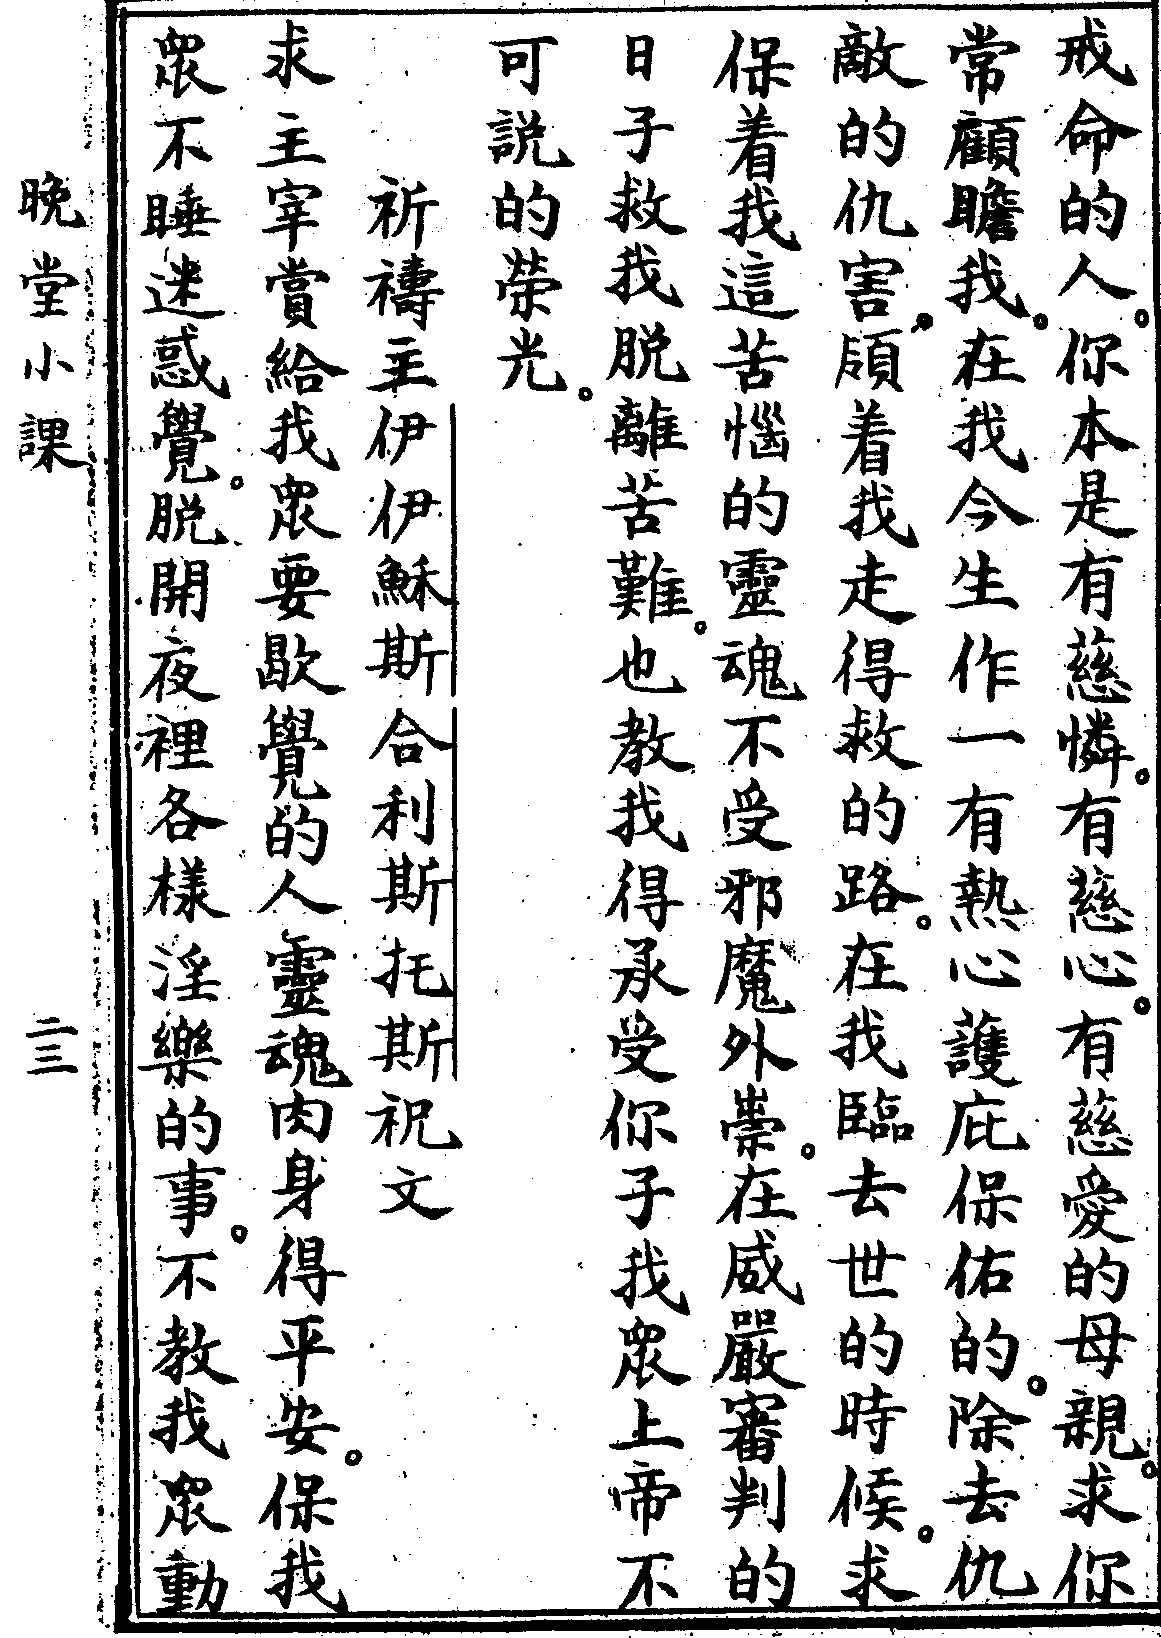 戒命的人。你本是有慈憐。有慈心。有慈愛的母親。求你
常顧瞻我。在我今生作一有熱心護庇保佑的。除去仇
敵的仇害。領着我走得救的路。在我臨去世的時候。求
保着我這苦惱的靈魂不受邪魔外祟。在威嚴審判的
日子救我脫離苦難。也教我得承受你子我眾上帝不
可說的榮光。
祈禱主伊伊穌斯合利斯托斯祝文
求主宰賞給我眾要歇覺的人靈魂肉身得平安。保我
眾不睡迷惑覺。脫開夜裡各樣淫樂的事。不教我眾動
晚堂小課
二三